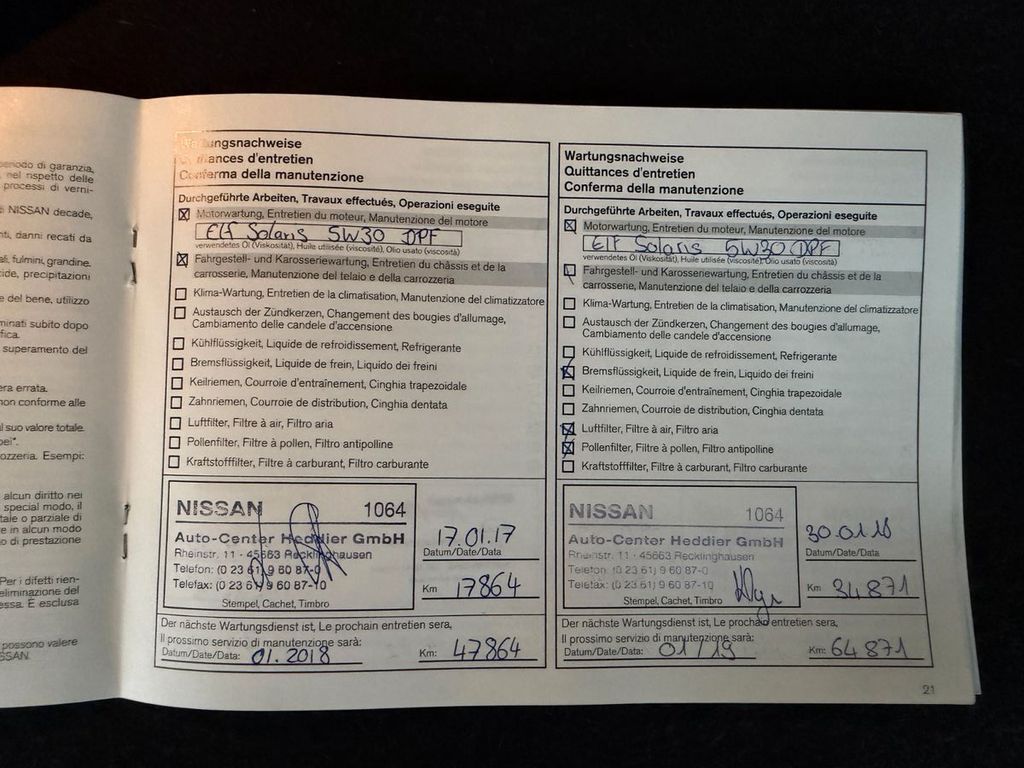 periodo di garanzia,
nel rispetto delle
processi di verni-
NISSAN decade,
danni recati da
fulmini, grandine.
precipitazioni
e del bene, utilizzo
minati subito dopo
fica.
superamento del
era errata.
non conforme alle
l suo valore totale.
pei".
ozzeria. Esempi:
alcun diritto nei
special modo, il
tale o parziale di
e in alcun modo
o di prestazione
Per i difetti rien-
eliminazione del
essa. È esclusa
possono valere
SSAN.
Wartungsnachweise
Quittances d'entretien
Conferma della manutenzione
Durchgeführte Arbeiten, Travaux effectués, Operazioni eseguite
Motorwartung, Entretien du moteur, Manutenzione del motore
Elf Solaris 5W30 DPF
verwendetes Öl (Viskosität), Huile utilisée (viscosité), Olio usato (viscosità)
Fahrgestell- und Karosseriewartung, Entretien du châssis et de la
carrosserie, Manutenzione del telaio e della carrozzeria
Klima-Wartung, Entretien de la climatisation, Manutenzione del climatizzatore
Austausch der Zündkerzen, Changement des bougies d'allumage,
Cambiamento delle candele d'accensione
Kühlflüssigkeit, Liquide de refroidissement, Refrigerante
Bremsflüssigkeit, Liquide de frein, Liquido dei freini
Keilriemen, Courroie d'entraînement, Cinghia trapezoidale
Zahnriemen, Courroie de distribution, Cinghia dentata
Luftfilter, Filtre à air, Filtro aria
Pollenfilter, Filtre à pollen, Filtro antipolline
Kraftstofffilter, Filtre à carburant, Filtro carburante
NISSAN 1064
Auto-Center Heddier GmbH
Rheinstr. 11 · 45663 Recklinghausen
Telefon: (0 23 61) 9 60 87-0
Telefax: (0 23 61) 9 60 87-10
Stempel, Cachet, Timbro
17.01.17
Datum/Date/Data
Km 17864
Der nächste Wartungsdienst ist, Le prochain entretien sera,
Il prossimo servizio di manutenzione sarà:
Datum/Date/Data: 01.2018 Km: 47864
Wartungsnachweise
Quittances d'entretien
Conferma della manutenzione
Durchgeführte Arbeiten, Travaux effectués, Operazioni eseguite
Motorwartung, Entretien du moteur, Manutenzione del motore
Elf Solaris 5W30 DPF
verwendetes Öl (Viskosität), Huile utilisée (viscosité), Olio usato (viscosità)
Fahrgestell- und Karosseriewartung, Entretien du châssis et de la
carrosserie, Manutenzione del telaio e della carrozzeria
Klima-Wartung, Entretien de la climatisation, Manutenzione del climatizzatore
Austausch der Zündkerzen, Changement des bougies d'allumage,
Cambiamento delle candele d'accensione
Kühlflüssigkeit, Liquide de refroidissement, Refrigerante
Bremsflüssigkeit, Liquide de frein, Liquido dei freini
Keilriemen, Courroie d'entraînement, Cinghia trapezoidale
Zahnriemen, Courroie de distribution, Cinghia dentata
Luftfilter, Filtre à air, Filtro aria
Pollenfilter, Filtre à pollen, Filtro antipolline
Kraftstofffilter, Filtre à carburant, Filtro carburante
NISSAN 1064
Auto-Center Heddier GmbH
Rheinstr. 11 · 45663 Recklinghausen
Telefon: (0 23 61) 9 60 87-0
Telefax: (0 23 61) 9 60 87-10
Stempel, Cachet, Timbro
30.01.18
Datum/Date/Data
Km 34871
Der nächste Wartungsdienst ist, Le prochain entretien sera,
Il prossimo servizio di manutenzione sarà:
Datum/Date/Data: 01/19 Km: 64871
21